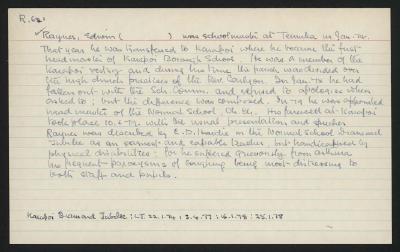 R.62
Raynes, Edwin ( ) was schoolmaster at Temuka in Jan. 74.
That year he was transferred to Kaiapoi where he became the first
headmaster of Kaiapoi Borough School. He was a member of the
Kaiapoi vestry and during his time the parish was divided over
the high church practices of the Rev. Carlyon. In Jan. 78 he had
fallen out with the Sch. Comm. and refused to apologise when
asked to; but the difference was composed. In 79 he was appointed
headmaster of the Normal School, Ch.Ch., his farewell at Kaiapoi
took place 10.6.79. with the usual presentation and speeches
Raynes was described by C.D. Hardie in the Normal School Diamond
Jubilee as an earnest and capable teacher, but handicapped by
physical disabilities; for he suffered grievously from asthma
his frequent paroxysms of coughing being most distressing to
both staff and pupils.
Kaiapoi Diamond Jubilee: L.T. 22.1.74; 3.4.77; 16.1.78; 25.1.78